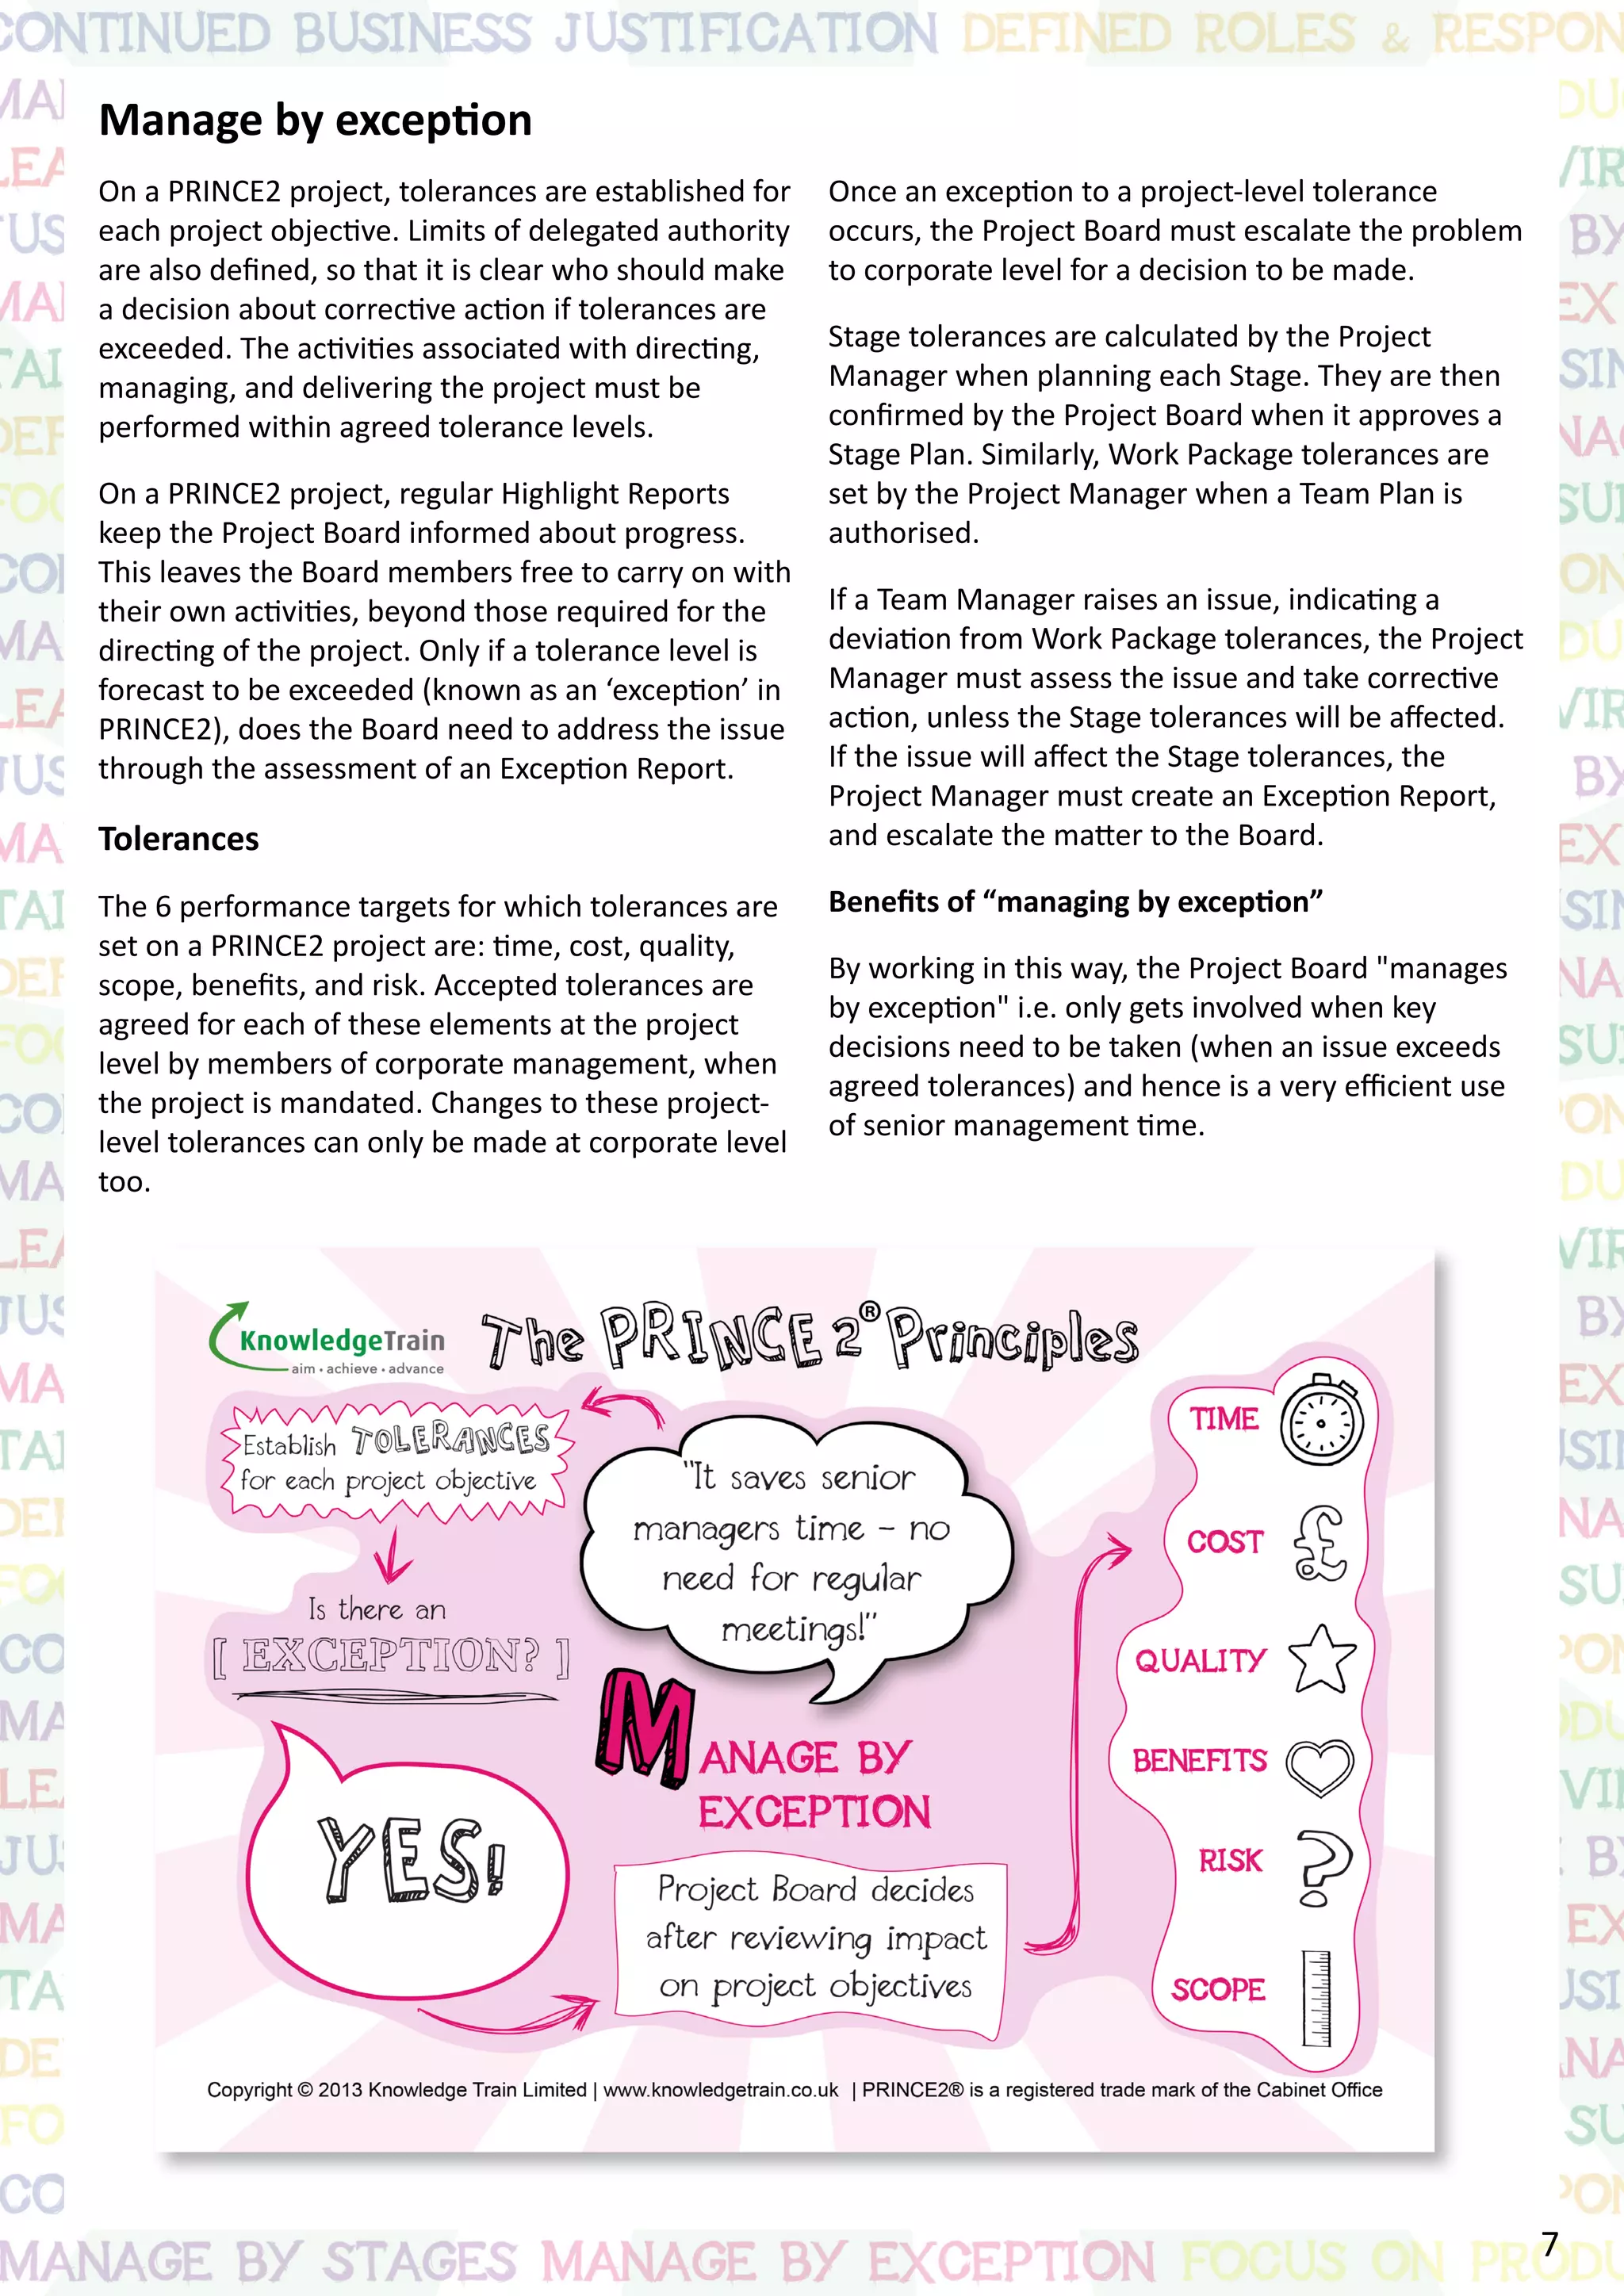 CONTINUED BUSINESS JUSTIFICATION DEFINED ROLES & RESPON
Manage by exception
On a PRINCE2 project, tolerances are established for
each project objective. Limits of delegated authority
are also defined, so that it is clear who should make
a decision about corrective action if tolerances are
exceeded. The activities associated with directing,
managing, and delivering the project must be
performed within agreed tolerance levels.
On a PRINCE2 project, regular Highlight Reports
keep the Project Board informed about progress.
This leaves the Board members free to carry on with
their own activities, beyond those required for the
directing of the project. Only if a tolerance level is
forecast to be exceeded (known as an ‘exception’ in
PRINCE2), does the Board need to address the issue
through the assessment of an Exception Report.
Tolerances
The 6 performance targets for which tolerances are
set on a PRINCE2 project are: time, cost, quality,
scope, benefits, and risk. Accepted tolerances are
agreed for each of these elements at the project
level by members of corporate management, when
the project is mandated. Changes to these project-
level tolerances can only be made at corporate level
too.
Once an exception to a project-level tolerance
occurs, the Project Board must escalate the problem
to corporate level for a decision to be made.
Stage tolerances are calculated by the Project
Manager when planning each Stage. They are then
confirmed by the Project Board when it approves a
Stage Plan. Similarly, Work Package tolerances are
set by the Project Manager when a Team Plan is
authorised.
If a Team Manager raises an issue, indicating a
deviation from Work Package tolerances, the Project
Manager must assess the issue and take corrective
action, unless the Stage tolerances will be affected.
If the issue will affect the Stage tolerances, the
Project Manager must create an Exception Report,
and escalate the matter to the Board.
Benefits of “managing by exception”
By working in this way, the Project Board "manages
by exception" i.e. only gets involved when key
decisions need to be taken (when an issue exceeds
agreed tolerances) and hence is a very efficient use
of senior management time.
KnowledgeTrain
aim • achieve • advance
The PRINCE2® Principles
Establish TOLERANCES
for each project objective
Is there an
[ EXCEPTION? ]
YES!
"It saves senior
managers time – no
need for regular
meetings!"
MANAGE BY
EXCEPTION
Project Board decides
after reviewing impact
on project objectives
TIME
COST
£
QUALITY
BENEFITS
RISK
?
SCOPE
Copyright © 2013 Knowledge Train Limited | www.knowledgetrain.co.uk | PRINCE2® is a registered trade mark of the Cabinet Office
7
MANAGE BY STAGES MANAGE BY EXCEPTION FOCUS ON PRODU